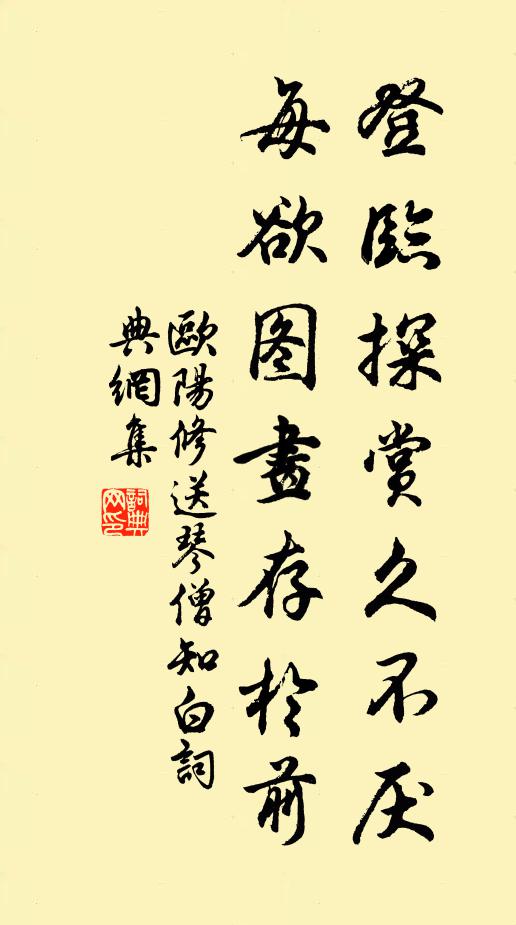 登臨探賞久不厌
每欲图畫存於前
歐陽修送琴僧知白詞
典網集
詞典网印